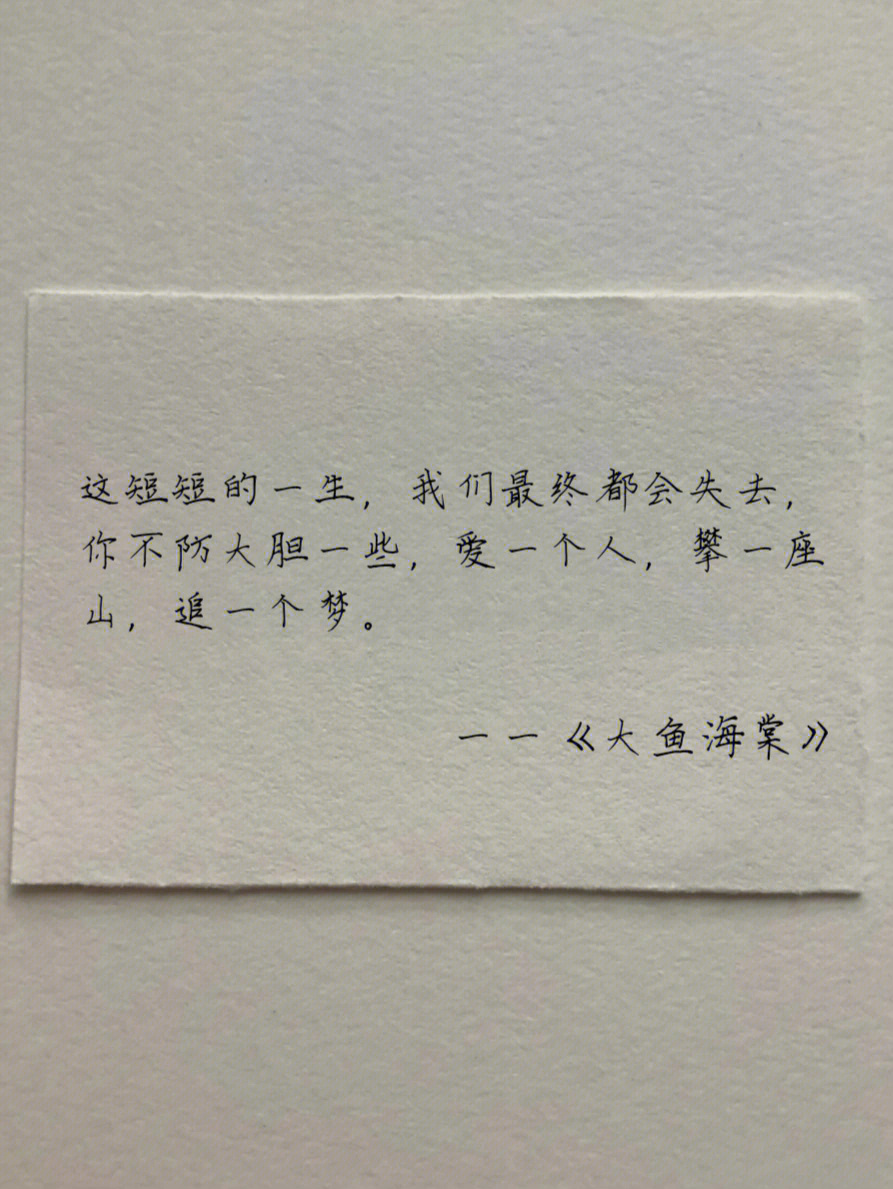 这短短的一生，我们最终都会失去，
你不防大胆一些，爱一个人，攀一座
山，追一个梦。
一一《大鱼海棠》